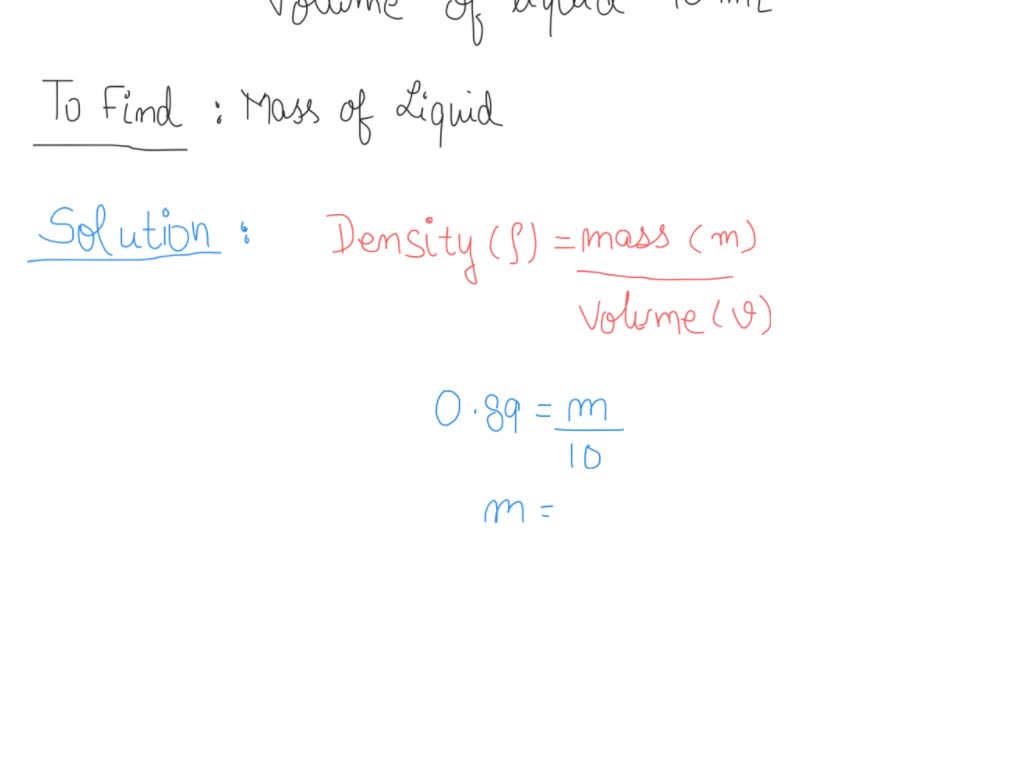 Volume of liquid 10 mL
To Find : Mass of Liquid
Solution : Density (ρ) = mass (m)
Volume (v)
0.89 = m
10
m =